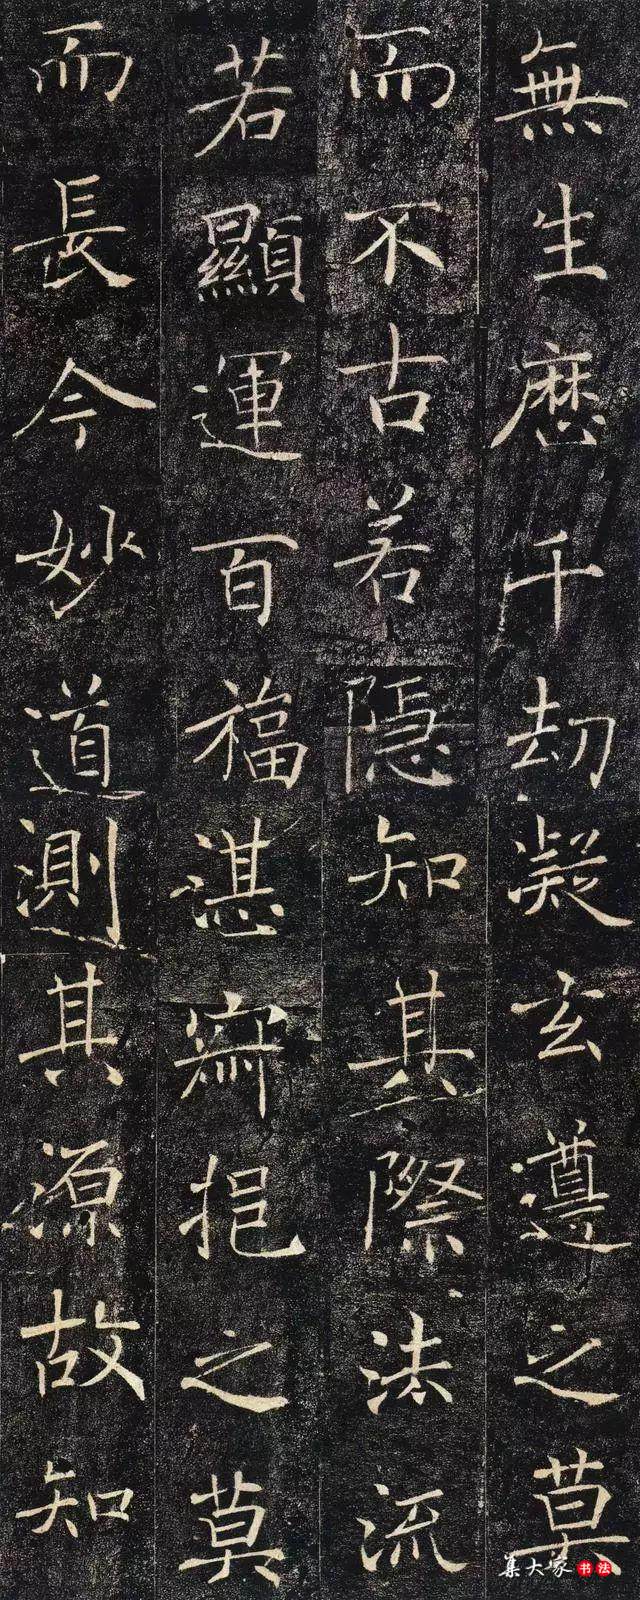 無生歷千劫凝玄遵之莫
而不古若隐知其際法流
若顯運百福湛寂挹之莫
而長今妙道測其源故知
集大家书法